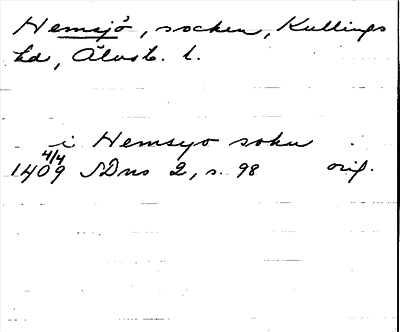 Hemsjö, socken, Kullings
hd, Älvsb. l.
i Hemsyo sokn
1409 4/4 SDns 2, s. 98 orig.